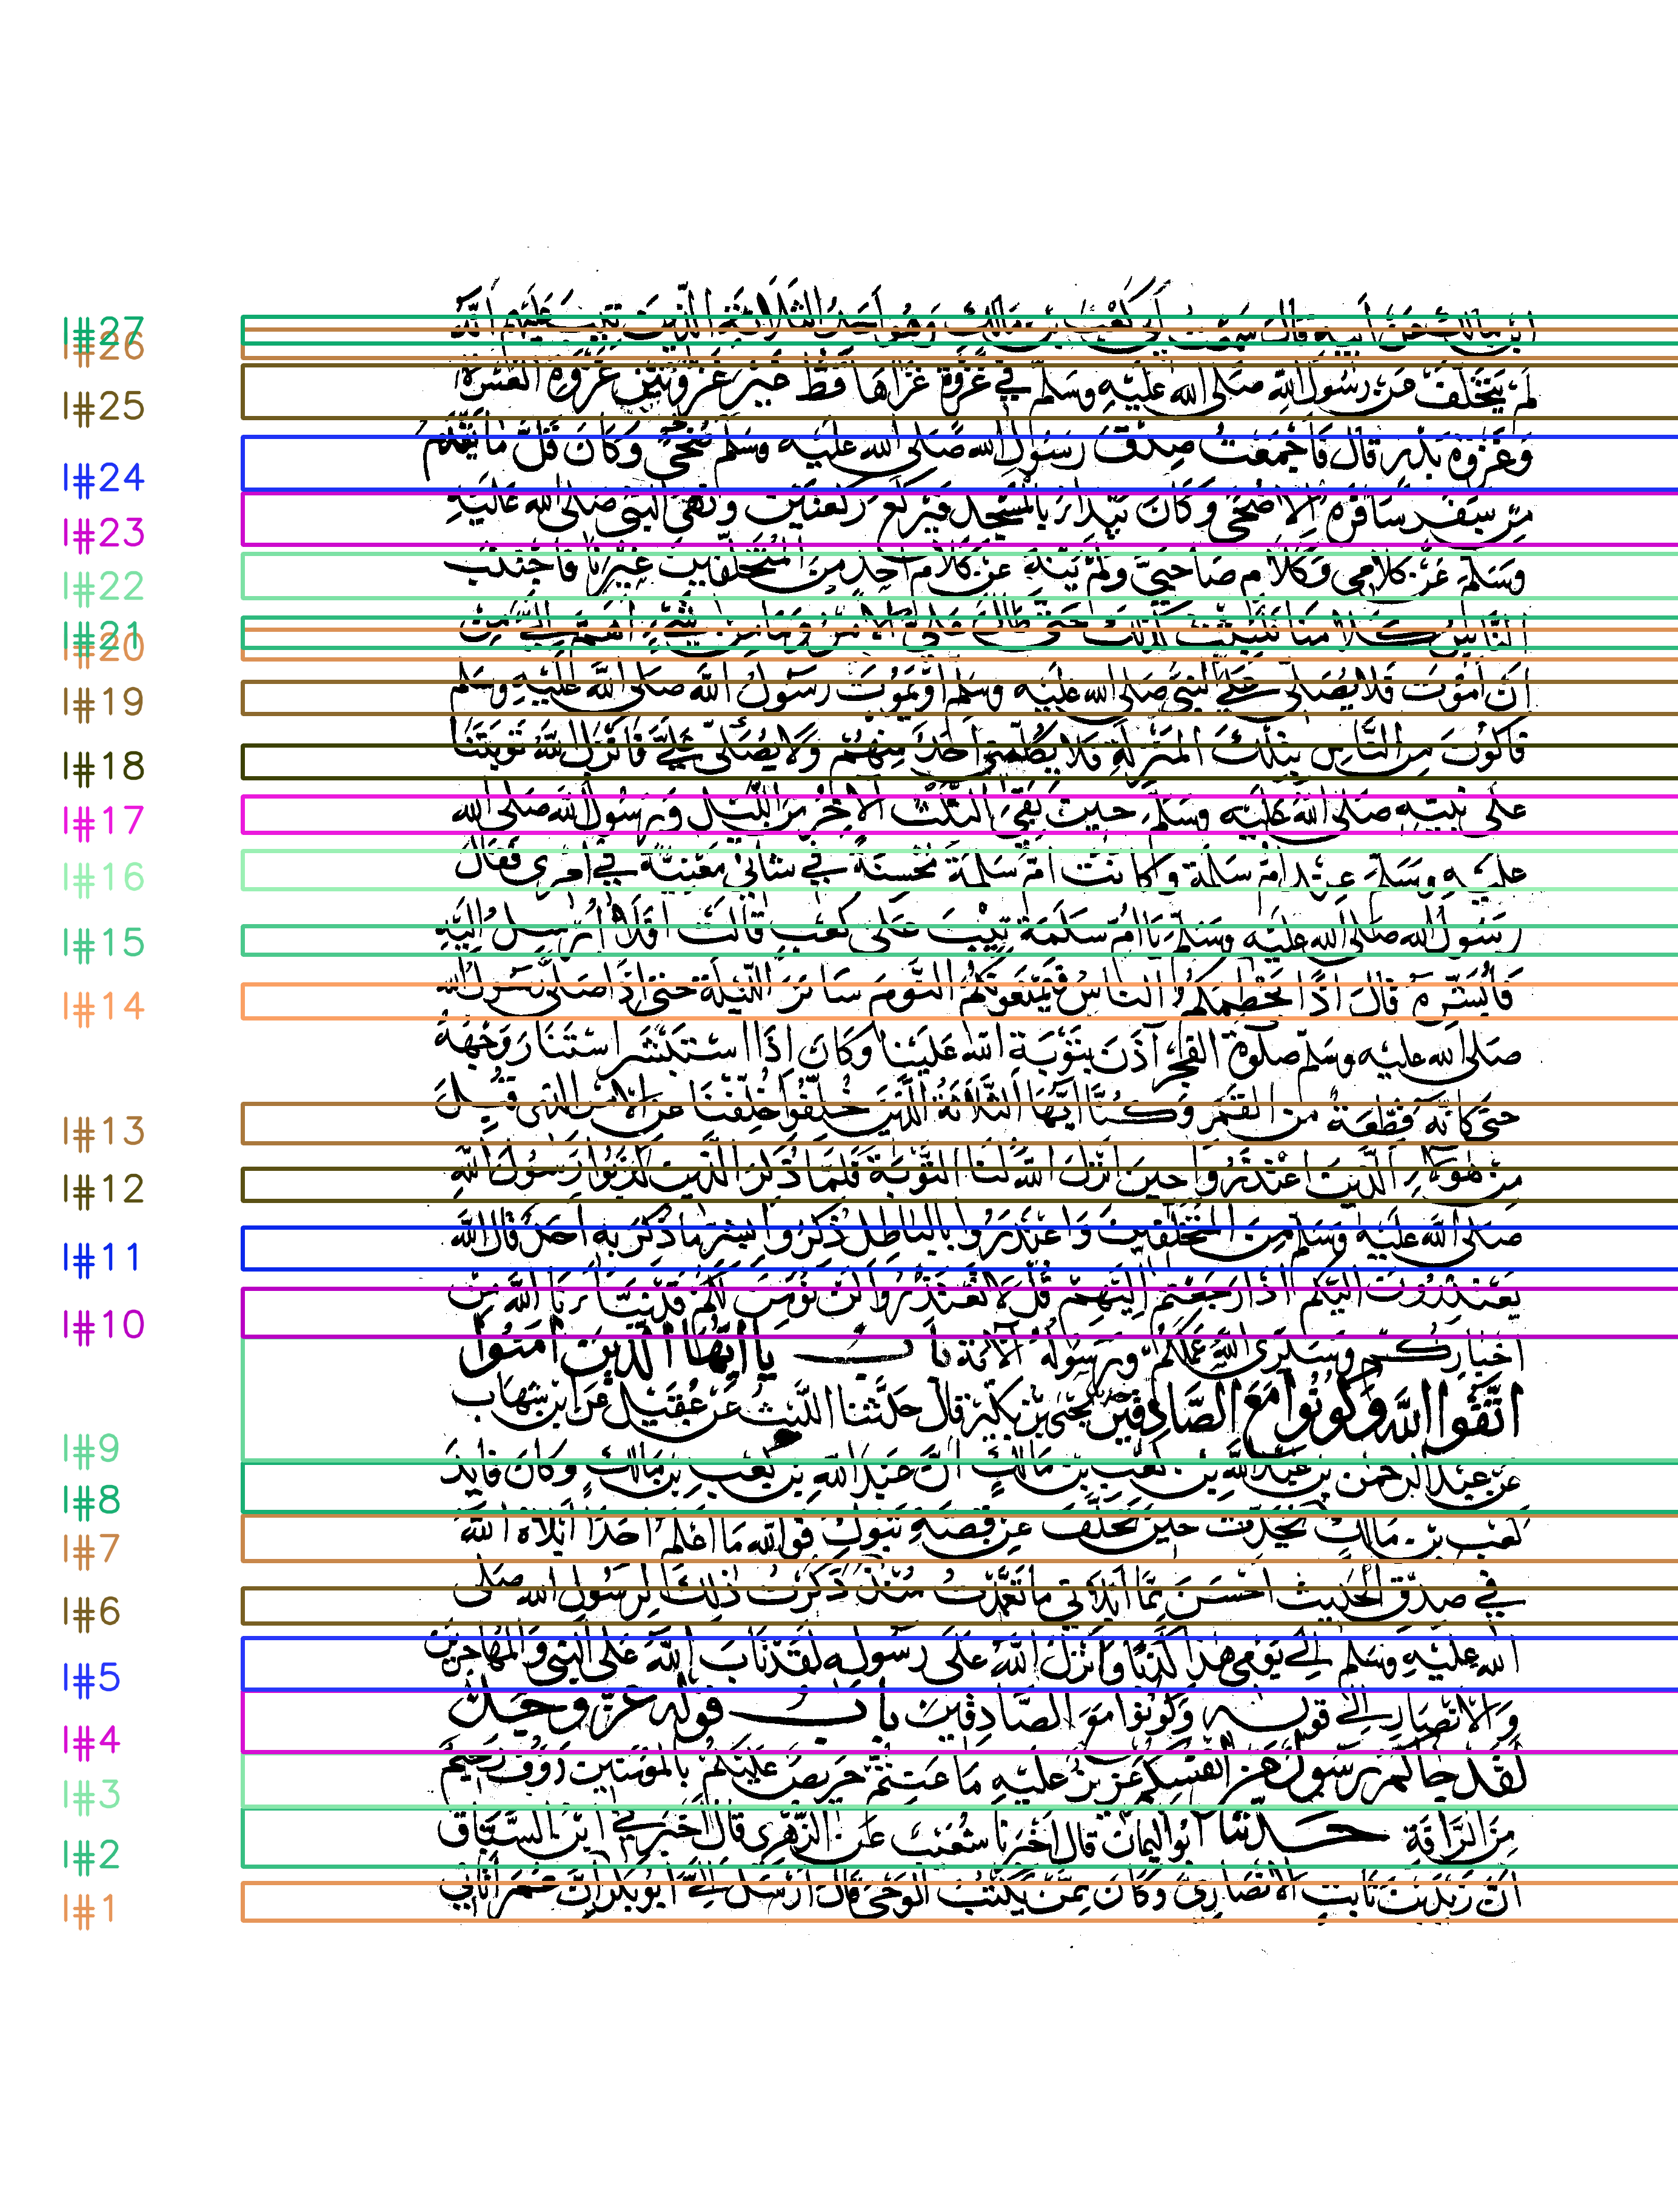 ابن مالك عن ابيه قال سمعت ابى كعب بن مالك وهو احد الثلاثة الذين تيب عليهم انه
لم يتخلف عن رسول الله صلى الله عليه وسلم في غزوة غزاها قط غير غزوتين غزوة العسرة
وغزوة بدر قال فاجمعت صدق رسول الله صلى الله عليه وسلم ضحى وكان قل ما يقدم
من سفر سافره الا ضحى وكان يبدا بالمسجد فيركع ركعتين ونهى النبى صلى الله عليه
وسلم عن كلامى وكلام صاحبى ولم ينه عن كلام احد من المتخلفين غيرنا فاجتنب
الناس كلامنا فلبثت كذلك حتى طال على الامر وما من شىء اهم الى من
ان اموت فلا يصلى على النبى صلى الله عليه وسلم او يموت رسول الله صلى الله عليه وسلم
فاكون من الناس بتلك المنزلة فلا يكلمنى احد منهم ولا يصلى على فانزل الله توبتنا
على نبيه صلى الله عليه وسلم حين بقى الثلث الاخر من الليل ورسول الله صلى الله
عليه وسلم عند ام سلمة وكانت ام سلمة محسنة في شانى معنية في امرى فقال
رسول الله صلى الله عليه وسلم يا ام سلمة تيب على كعب قالت افلا ارسل اليه
فابشره قال اذا يحطمكم الناس فيمنعونكم النوم سائر الليلة حتى اذا صلى رسول الله
صلى الله عليه وسلم صلوة الفجر آذن بتوبة الله علينا وكان اذا استبشر استنار وجهه
حتى كانه قطعة من القمر وكنا ايها الثلاثة الذين خلفوا خلفنا عن الامر الذى قبل
من هؤلاء الذين اعتذروا حين انزل الله لنا التوبة فلما ذكر الذين كذبوا رسول الله
صلى الله عليه وسلم من المتخلفين واعتذروا بالباطل ذكروا بشر ما ذكر به احد قال الله
يعتذرون اليكم اذا رجعتم اليهم قل لا تعتذروا لن نؤمن لكم قد نبانا الله من
اخباركم وسيرى الله عملكم ورسوله الآية باب يا ايها الذين امنوا
اتقوا الله وكونوا مع الصادقين يحيى بن بكير قال حدثنا الليث عن عقيل عن ابن شهاب
عن عبد الرحمن بن عبد الله بن كعب بن مالك ان عبد الله بن كعب بن مالك وكان قايد
كعب بن مالك يحدث حين تخلف عن قصة تبوك فوالله ما اعلم احدا ابلاه الله
في صدق الحديث احسن مما ابلانى ما تعمدت منذ ذكرت ذلك لرسول الله صلى
الله عليه وسلم الى يومى هذا كذبا وانزل الله على رسوله لقد تاب الله على النبى والمهاجرين
والانصار الى قوله وكونوا مع الصادقين باب قوله عز وجل
لقد جاءكم رسول من انفسكم عزيز عليه ما عنتم حريص عليكم بالمؤمنين رؤوف رحيم
من الرافة حدثنا ابو اليمان قال اخبرنا شعيب عن الزهرى قال اخبرنى ابن السباق
ان زيد بن ثابت الانصارى وكان ممن يكتب الوحى قال ارسل الى ابو بكر ان عمر اتانى
l#27
l#26
l#25
l#24
l#23
l#22
l#21
l#20
l#19
l#18
l#17
l#16
l#15
l#14
l#13
l#12
l#11
l#10
l#9
l#8
l#7
l#6
l#5
l#4
l#3
l#2
l#1